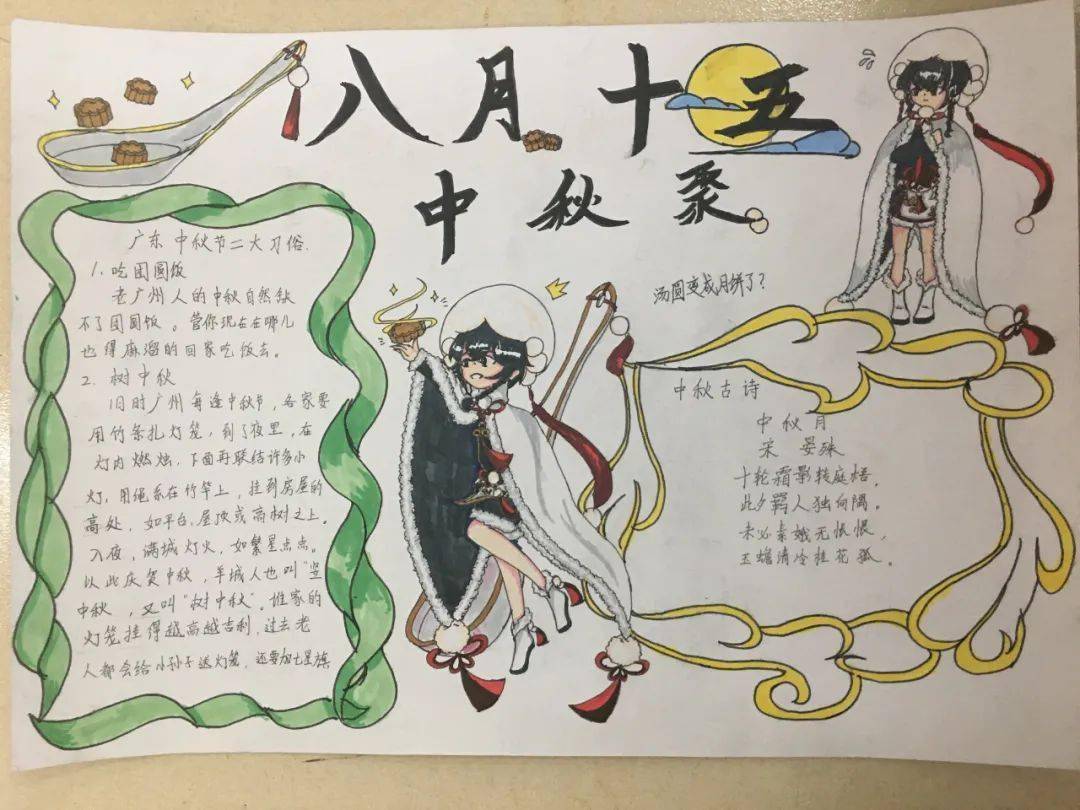 八月十五
中秋聚
广东中秋节二大习俗.
1. 吃团圆饭
老广州人的中秋自然缺
不了团圆饭。管你现在在哪儿
也得麻溜的回家吃饭去。
2. 树中秋
旧时广州每逢中秋节，各家要
用竹条扎灯笼，到了夜里，在
灯内燃烛，下面再联结许多小
灯，用绳系在竹竿上，挂到房屋的
高处，如平台，屋顶或高树之上。
入夜，满城灯火，如繁星点点。
以此庆贺中秋，羊城人也叫“竖
中秋，又叫“树中秋”。谁家的
灯笼挂得越高越吉利，过去老
人都会给小孙子送灯笼，还要加七星旗
汤圆变成月饼了？
中秋古诗
中秋月
宋 晏殊
十轮霜影转庭梧，
此夕羁人独向隅。
未必素娥无怅恨，
玉蟾清冷桂花孤。